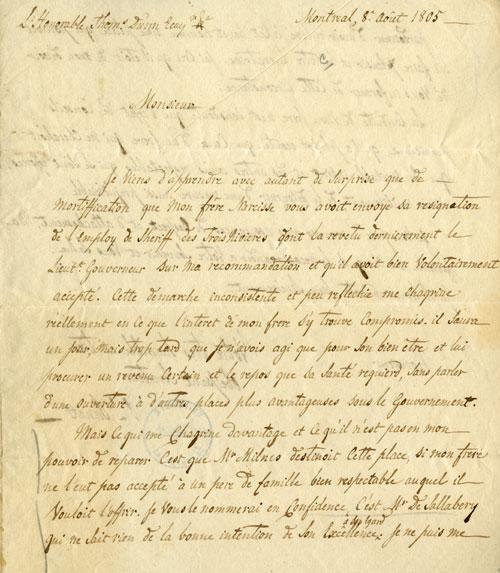 L'Honorable Thoms. Dunn Ecuyr. &c
Montreal, 8e. Août 1805
Monsieur
Je Viens d'apprendre avec autant de Surprise que de
Mortification que Mon frère Narcisse vous avoit envoyé sa resignation
de l'Employ de Sheriff des Trois Rivieres dont la revetu dernierement le
Lieutt. Gouverneur sur ma recommandation et qu'il avoit bien Volontairement
accepté. Cette demarche inconsistente et peu reflechie me chagrine
réellement en ce que l'interet de mon frere s'y trouve Compromis. il Saura
un jour, mais trop tard, que je n'avois agi que pour Son bien être et lui
procurer un revenu Certain et le repos que sa Santé requiers, Sans parler
d'une ouverture à d'autres places plus avantageuses sous le Gouvernement.
Mais Ce qui me Chagrine davantage et Ce qu'il n'est pas en mon
pouvoir de reparer C'est que Mr. Milnes destinoit Cette place, si mon frère
ne l'eut pas accepté à un pere de famille bien respectable auquel il
Vouloit l'offrir. je Vous le nommerai en Confidence, C'est Mr. de Sallabery
qui ne Sait rien de la bonne intention de Son Excellence à son égard. Je ne puis me